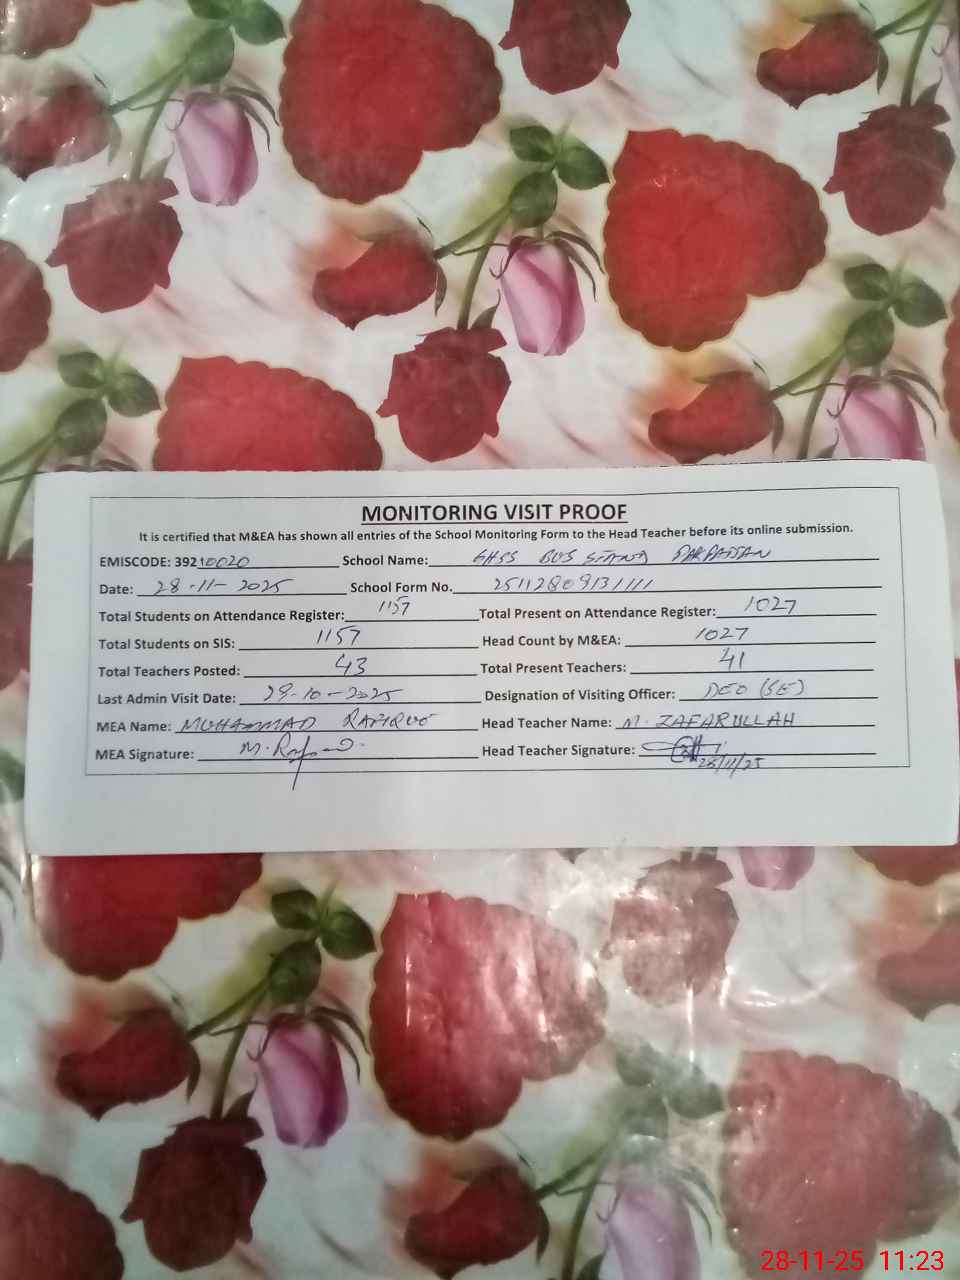 MONITORING VISIT PROOF
It is certified that M&EA has shown all entries of the School Monitoring Form to the Head Teacher before its online submission.
EMISCODE: 39210020 School Name: GHSS BUS STAND PAKPATTAN
Date: 28-11-2025 School Form No. 25112809131111
Total Students on Attendance Register: 1157 Total Present on Attendance Register: 1027
Total Students on SIS: 1157 Head Count by M&EA: 1027
Total Teachers Posted: 43 Total Present Teachers: 41
Last Admin Visit Date: 29-10-2025 Designation of Visiting Officer: DEO (SE)
MEA Name: MUHAMMAD RAFIQUE Head Teacher Name: M. ZAFARULLAH
MEA Signature: Head Teacher Signature:
28/11/25
28-11-25 11:23